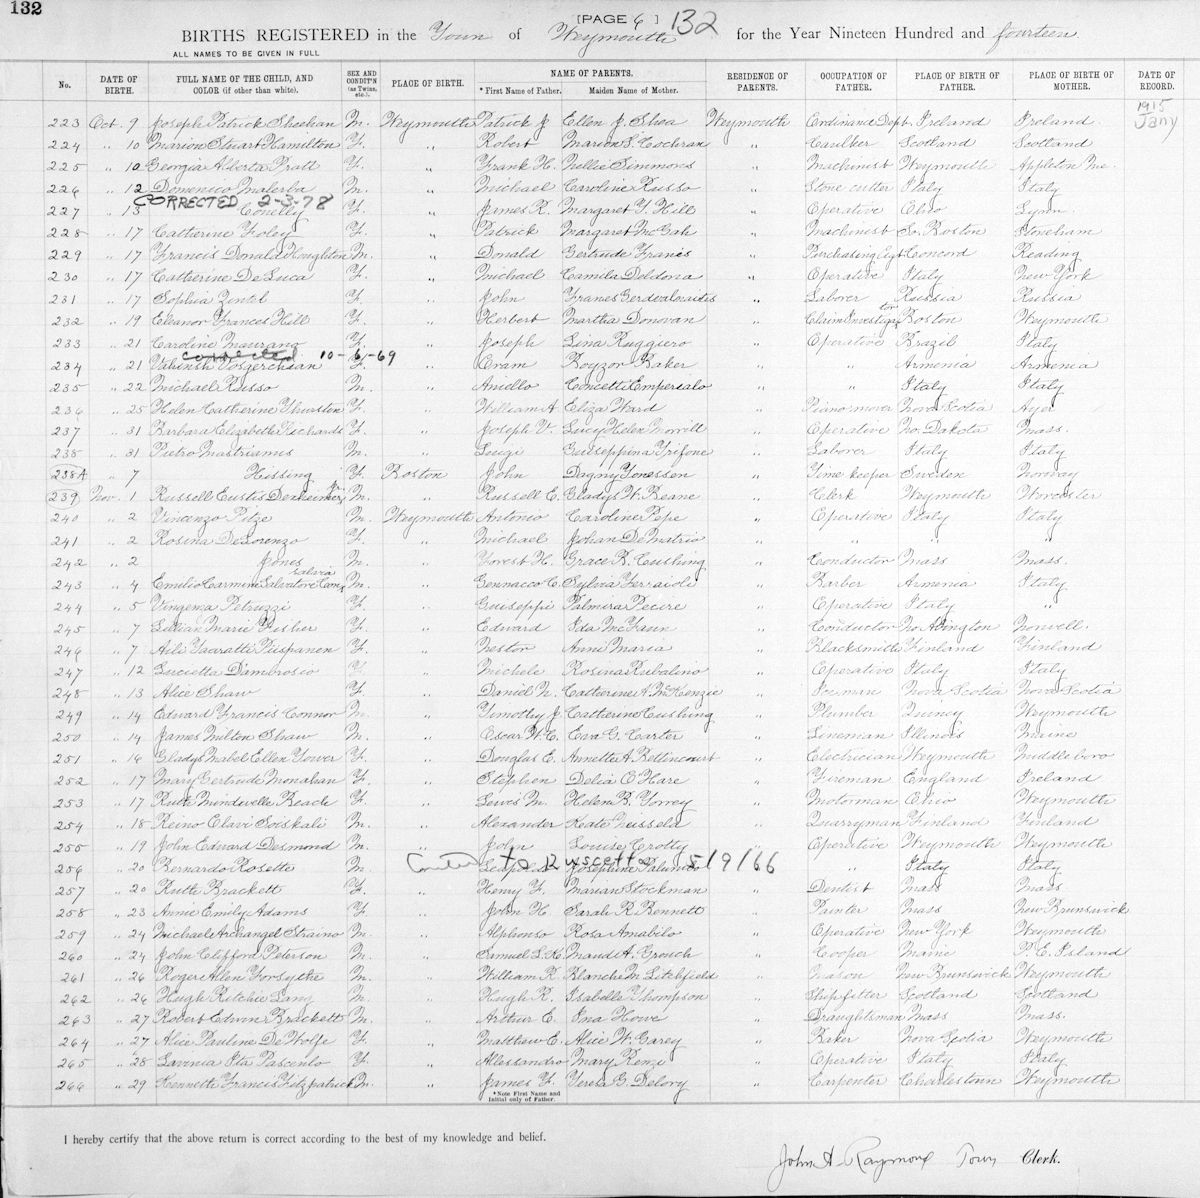 132
[PAGE 6 ] 132
BIRTHS REGISTERED in the Town of Weymouth for the Year Nineteen Hundred and fourteen.
ALL NAMES TO BE GIVEN IN FULL
No. DATE OF BIRTH. FULL NAME OF THE CHILD, AND COLOR (if other than white). SEX AND CONDIT'N (as Twins, etc.). PLACE OF BIRTH. NAME OF PARENTS. * First Name of Father. Maiden Name of Mother. RESIDENCE OF PARENTS. OCCUPATION OF FATHER. PLACE OF BIRTH OF FATHER. PLACE OF BIRTH OF MOTHER. DATE OF RECORD.
1915
223 Oct. 9 Joseph Patrick Sheehan M. Weymouth Patrick J Ellen J. Shea Weymouth Ordinance Dept. Ireland Ireland. Jany
224 " 10 Marion Stuart Hamilton F. " Robert Marion S. Cochran " Caulker Scotland Scotland
225 " 10 Georgia Alberta Pratt F. " Frank H. Nellie Simmons " Machinist Weymouth Appleton Me.
226 " 12 Domenico Malerba M. " Michael Caroline Russo " Stone cutter Italy Italy
CORRECTED 2-3-78
227 " 13 Conelly F. " James R. Margaret F. Hill " Operative Ohio Lynn.
228 " 17 Catherine Foley F. " Patrick Margaret McGah " Machinist So. Boston Stoneham
229 " 17 Francis Donald Houghton M. " Donald Gertrude Francis " Purchasing Agt Concord Reading
230 " 17 Catherine DeLuca F. " Michael Camila Deldona " Operative Italy New York
231 " 17 Sophia F. " John Frances " Laborer Russia Russia
232 " 19 Eleanor Frances Hill F. " Herbert Martha Donovan " Claim Investigator Boston Weymouth
233 " 21 Caroline Maurano F. " Joseph Lina Ruggiero " Operative Brazil Italy
corrected 10-6-69
234 " 21 Vosgerchian F. " Oram Boyzor Baker " " Armenia Armenia
235 " 22 Michael Russo M. " Aniello Emperialo " " Italy Italy
236 " 25 Helen Catherine Thurston F. " William A. Eliza Ward " Piano mover Nova Scotia Ayer
237 " 31 Barbara Elizabeth Richards F. " Joseph V. Lucy Helen Morrell " Operative No. Dakota Mass.
238 " 31 Pietro Mastrianis M. " Luigi Guiseppina Trifone " Laborer Italy Italy
238A " 7 Hissing F. Boston John Dagny Tonessen " Time keeper Sweden Norway
239 Nov. 1 Russell Eustis Dexheimer Jr. M. " Russell E. Gladys W. Beane " Clerk Weymouth Worcester
240 " 2 Vincenzo Pitze M. Weymouth Antonio Caroline Pepe " Operative Italy Italy
241 " 2 Rosina DeLorenzo F. " Michael Johan DeMatrio " " " "
242 " 2 Jones M. " Forest H. Grace B. Cushing " Conductor Mass Mass.
243 " 4 Emilio Carmine Salvatore M. " Gennacco C. Sylvia Ferraioli " Barber Armenia Italy
244 " 5 Vingenza Petruzzi F. " Guiseppi Palmira Pecire " Operative Italy "
245 " 7 Lillian Marie Fisher F. " Edward Ida McFaun " Conductor No. Abington Norwell.
246 " 7 Aili Puspanen F. " Nestor Anni Maria " Blacksmith Finland Finland
247 " 12 Lucietta Dambrosio F. " Michele Rosina Rubalino " Operative Italy Italy
248 " 13 Alice Shaw F. " Daniel N. Catherine A. McKenzie " Iceman Nova Scotia Nova Scotia
249 " 14 Edward Francis Connor M. " Timothy J. Catherine Cushing " Plumber Quincy Weymouth
250 " 14 James Milton Shaw M. " Oscar W.C. Eva G. Carter " Lineman Illinois Maine
251 " 16 Gladys Mabel Ellen Tower F. " Douglas E. Annette A Bettincourt " Electrician Weymouth Middleboro
252 " 17 Mary Gertrude Monahan F. " Stephen Delia O'Hare " Fireman England Ireland
253 " 17 Ruth Mindwelle Beach F. " Lewis M. Helen B. Torrey " Motorman Ohio Weymouth
254 " 18 Reino Olavi Soiskali M. " Alexander Keate Neissela " Quarryman Finland Finland
255 " 19 John Edward Desmond M. " John Louise Crotty " Operative Weymouth Weymouth
to Ruscetta 5/9/66
256 " 20 Bernardo Rosette Josephine Palumbo " " Italy Italy
257 " 20 Ruth Brackett F. " Henry F. Marian Stockman " Dentist Mass Mass
258 " 23 Annie Emily Adams F. " John H. Sarah R. Bennett " Painter Mass New Brunswick
259 " 24 Michael Archangel Straino M. " Alphonso Rosa Amabilo " Operative New York Weymouth
260 " 24 John Clifford Peterson M. " Samuel L.H. Maud A. Crouch " Cooper Maine P.E. Island
261 " 26 Roger Allen Forsythe M. " William R. Blanche M. Litchfield " Mason New Brunswick Weymouth
262 " 26 Hugh Ritchie Lang M. " Hugh R. Isabelle Thompson " Shipfitter Scotland Scotland
263 " 27 Robert Edwin Brackett M. " Arthur E. Ina Howe " Draughtsman Mass Mass.
264 " 27 Alice Pauline DeWolfe F. " Matthew E. Alice W. Garey " Baker Nova Scotia Weymouth
265 " 28 Lavinia Ita Pascenlo F. " Alessandro Mary Renzi " Operative Italy Italy
266 " 29 Kenneth Francis Fitzpatrick M. " James F. Teresa G. Delory " Carpenter Charlestown Weymouth
*Note First Name and Initial only of Father.
I hereby certify that the above return is correct according to the best of my knowledge and belief.
John A. Raymond Town Clerk.